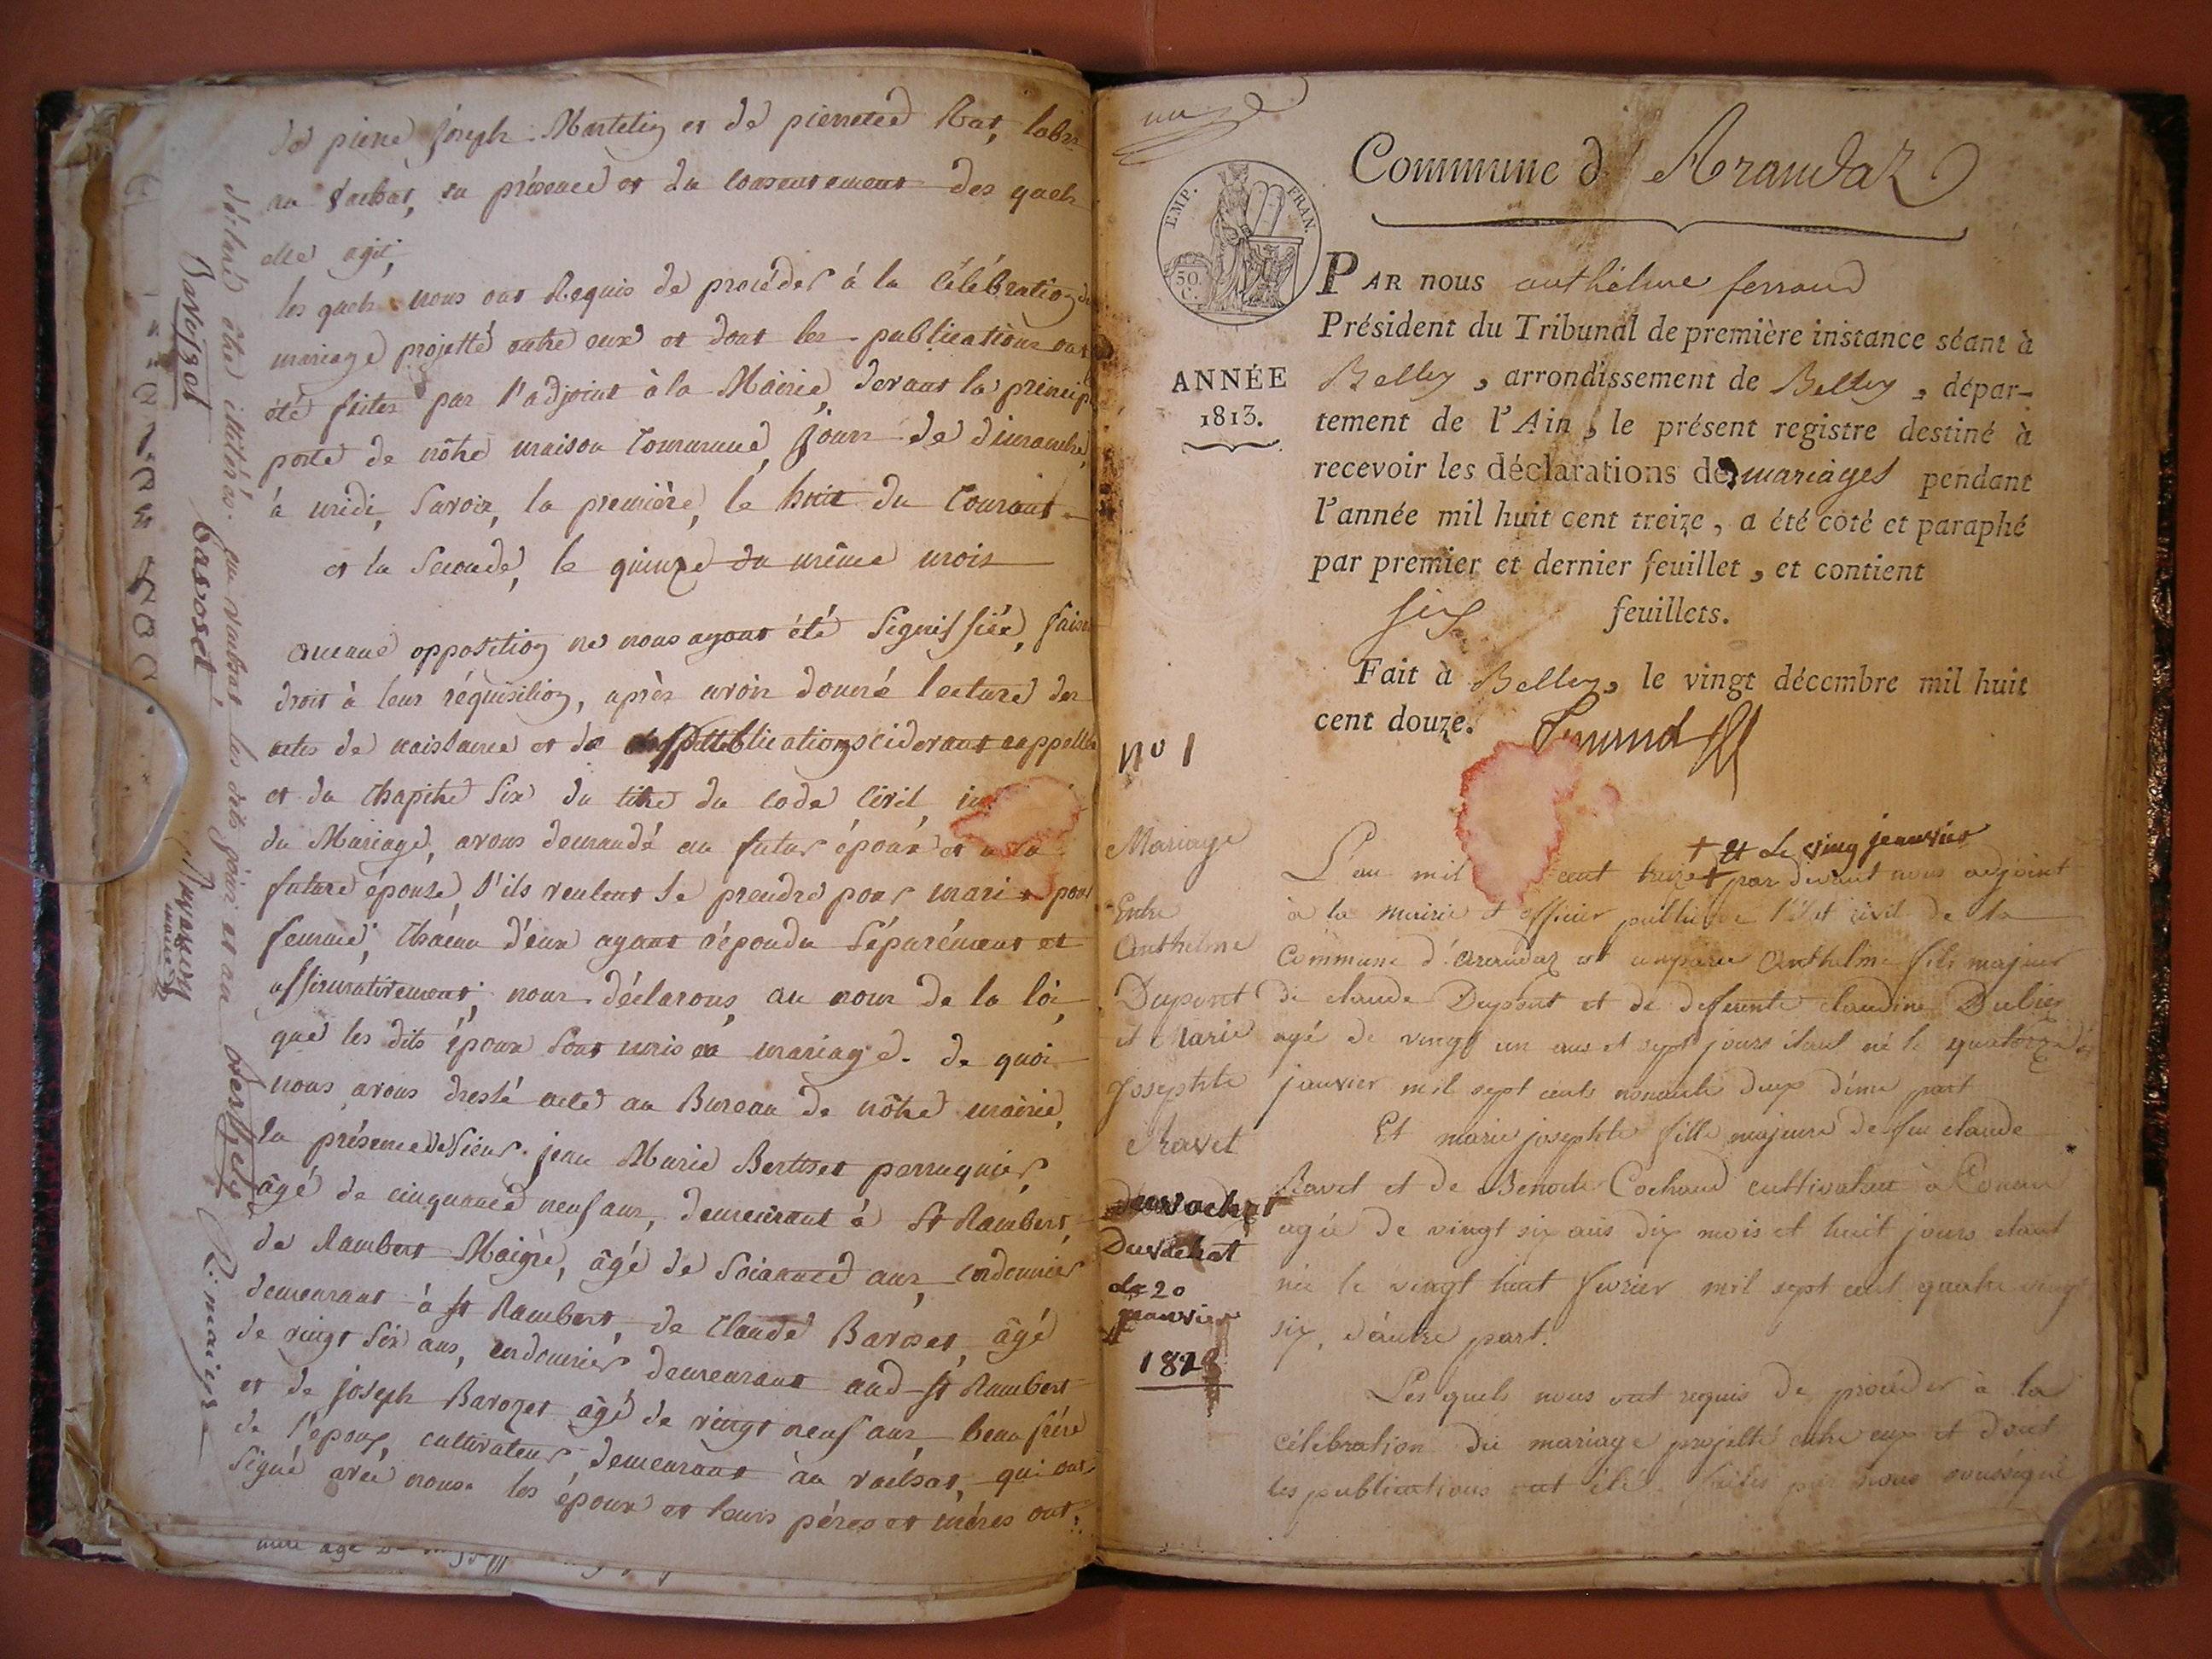 de pierre joseph Martelin et de pierrette Rat, labr
au vachat, en présence et du consentement des quels
elle agit,
les quels nous ont Requis de procéder à la Célébration du
mariage projetté entre eux et dont les publications ont
été faites par l'adjoint à la Mairie, devant la princip
porte de nôtre maison Commune, jours de dimanche,
à midi, Savoir, la première, le huit du Courant
et la Seconde, le quinze du même mois
aucune opposition ne nous ayant été Signiffiée, faisant
droit à leur réquisition, après avoir donné lecture des
actes de naissance et de publications cidevant rappellés
et du Chapitre Six du titre du Code Civil
du Mariage, avons demandé au futur époux et à la
future épouse, s'ils veulent se prendre pour mari et pour
femme; Chacun d'eux ayant répondu Séparément et
affirmativement; nous déclarons, au nom de la loi,
que les dits époux Sont unis en mariage. de quoi
nous avons dressé acte au Bureau de nôtre mairie,
En présence de Sieur jean Marie Berthet perruquier,
âgé de cinquante neuf ans, demeurant à St Rambert,
de Rambert Maigre, âgé de Soixante ans, cordonnier
demeurant à St Rambert, de Claude Barozet, âgé
de vingt Six ans, cordonnier demeurant aud St Rambert
et de joseph Barozet âgé de vingt neuf ans, beau frère
de l'époux, cultivateur demeurant au vachat, qui ont
Signé avec nous. les époux et leurs pères et mères ont
déclaré être illitérés. au vachat les dits jour et an
Barozet
Barozet
Berthet
R: maigre
maire
une
Commune d' Arandaz
EMP. FRAN.
50 C.
ANNÉE
1813.
PAR nous anthélme ferrand
Président du Tribunal de première instance séant à
Belley, arrondissement de Belley, dépar-
tement de l'Ain, le présent registre destiné à
recevoir les déclarations de mariages pendant
l'année mil huit cent treize, a été coté et paraphé
par premier et dernier feuillet, et contient
six feuillets.
Fait à Belley, le vingt décembre mil huit
cent douze. Ferrand
No 1
Mariage
Entre
Anthelme
Dupont
et Marie
Josephte
Ravet
Duvachat
Duvachat
le 20
jeanvier
181
+ et Le ving jeanvier
L'an mil cent treize + par devant nous adjoint
à la mairie et officier public de l'état civil de la
Commune d'Arandaz est comparu Anthelme fils majeur
de claude Dupont et de deffunte claudine Dubiez
agé de vingt un ans et sept jours étant né le quatorze de
janvier mil sept cents nonante deux d'une part
Et marie josephte fille majeure de feu claude
Ravet et de Benoite Cochand cultivateur à Conan
agée de vingt six ans dix mois et huit jours etant
née le vingt huit fevrier mil sept cent quatre vingt
six, d'autre part.
Les quels nous ont requis de procéder à la
célébration du mariage projetté entre eux et dont
les publications ont été faites par nous soussigné